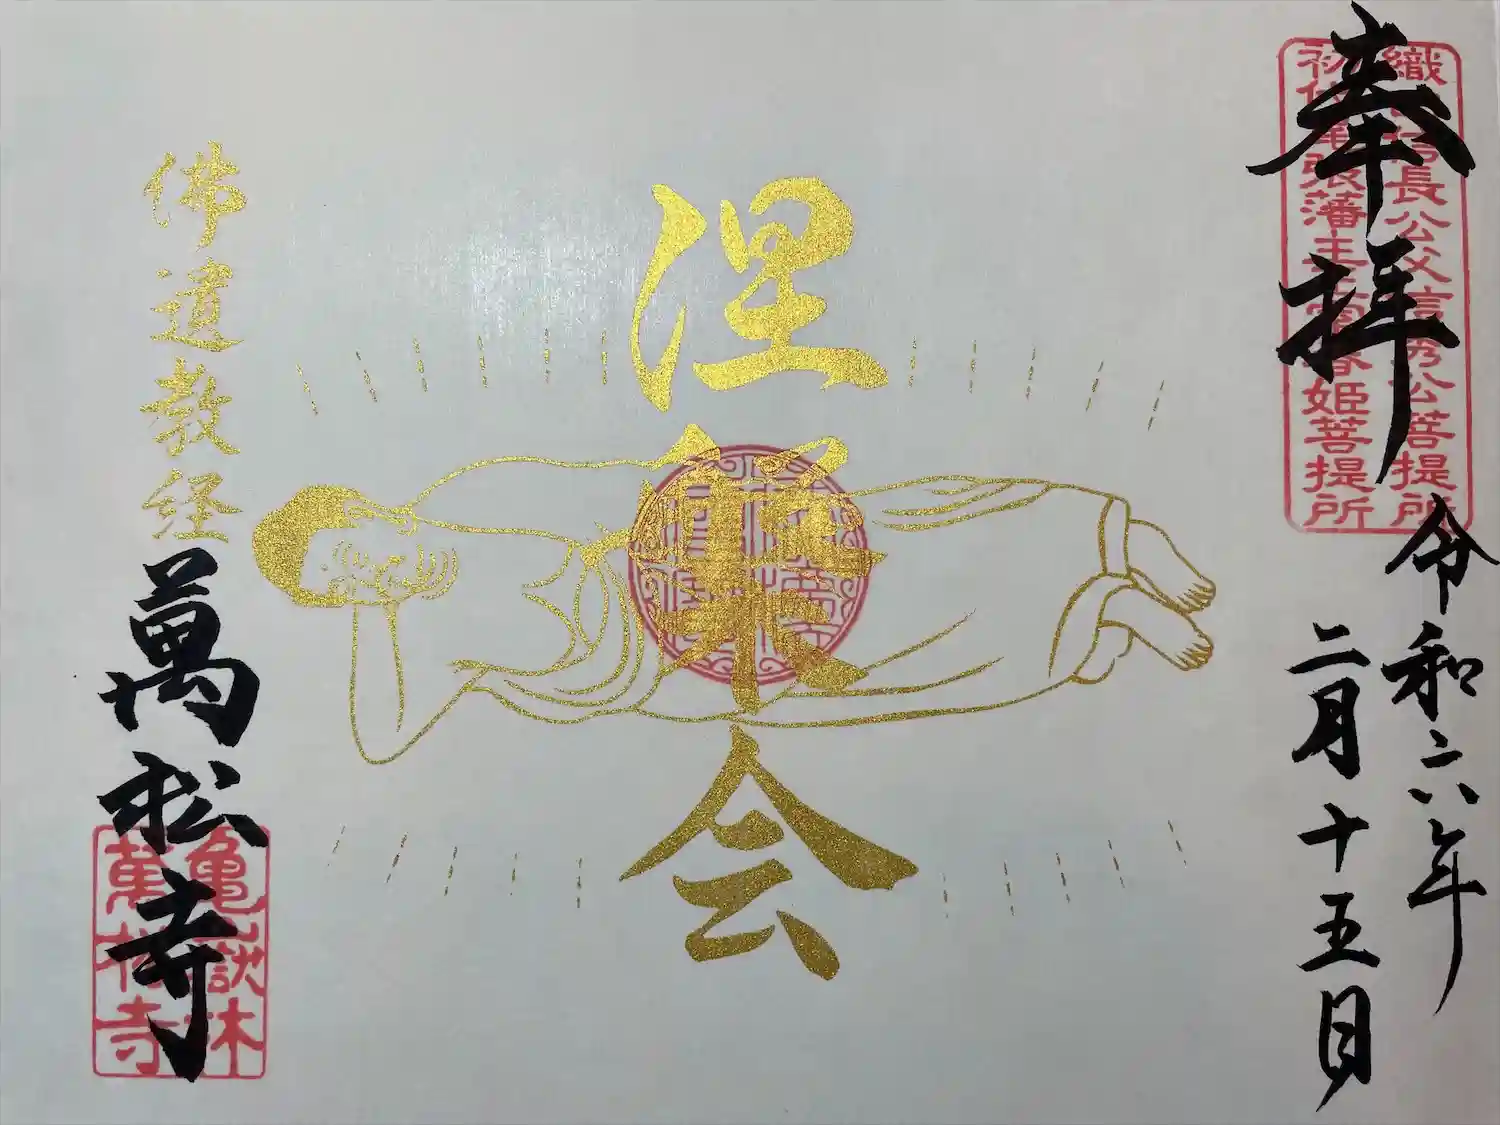 奉拝
織田信長公父信秀公菩提所
初代尾張藩主正室春姫菩提所
令和六年
二月十五日
涅槃会
佛遺教経
萬松寺
亀嶽林
萬松寺